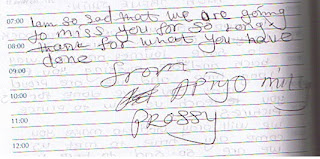 07:00 I am so sad that we are going
to miss you for so long x
08:00 thank for what you have
done
09:00
from
10:00
Apiyo milly
11:00 PROSSY
12:00